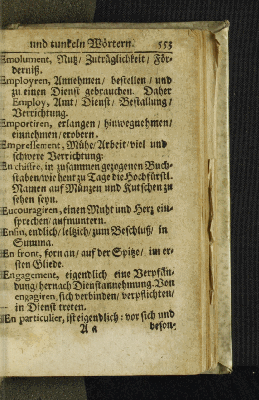 und tunkeln Wörtern. 553
Emolument, Nutz/ Zuträglichkeit/ För-
derniß.
Employren, Annehmen/ bestellen/ und
zu einen Dienst gebrauchen. Daher
Employ, Amt/ Dienst/ Bestallung/
Verrichtung.
Emportiren, erlangen/ hinwegnehmen/
einnehmen/ erobern.
Empressement, Mühe/ Arbeit/ viel und
schwere Verrichtung:
En chiffre, in zusammen gezogenen Buch-
staben/ wie heut zu Tage die Hochfürstl.
Namen auf Müntzen und Kutschen zu
sehen seyn.
Encouragiren, einen Muht und Hertz ein-
sprechen/ aufmuntern.
Enfin, endlich/ letzlich/ zum Beschluß/ in
Summa.
En front, forn an/ auf der Spitze/ im er-
sten Gliede.
Engagement, eigendlich eine Verpfän-
dung/ hernach Dienstannehmung. Von
engagiren, sich verbinden/ verpflichten/
in Dienst treten.
En particulier, ist eigendlich: vor sich und
A a beson-